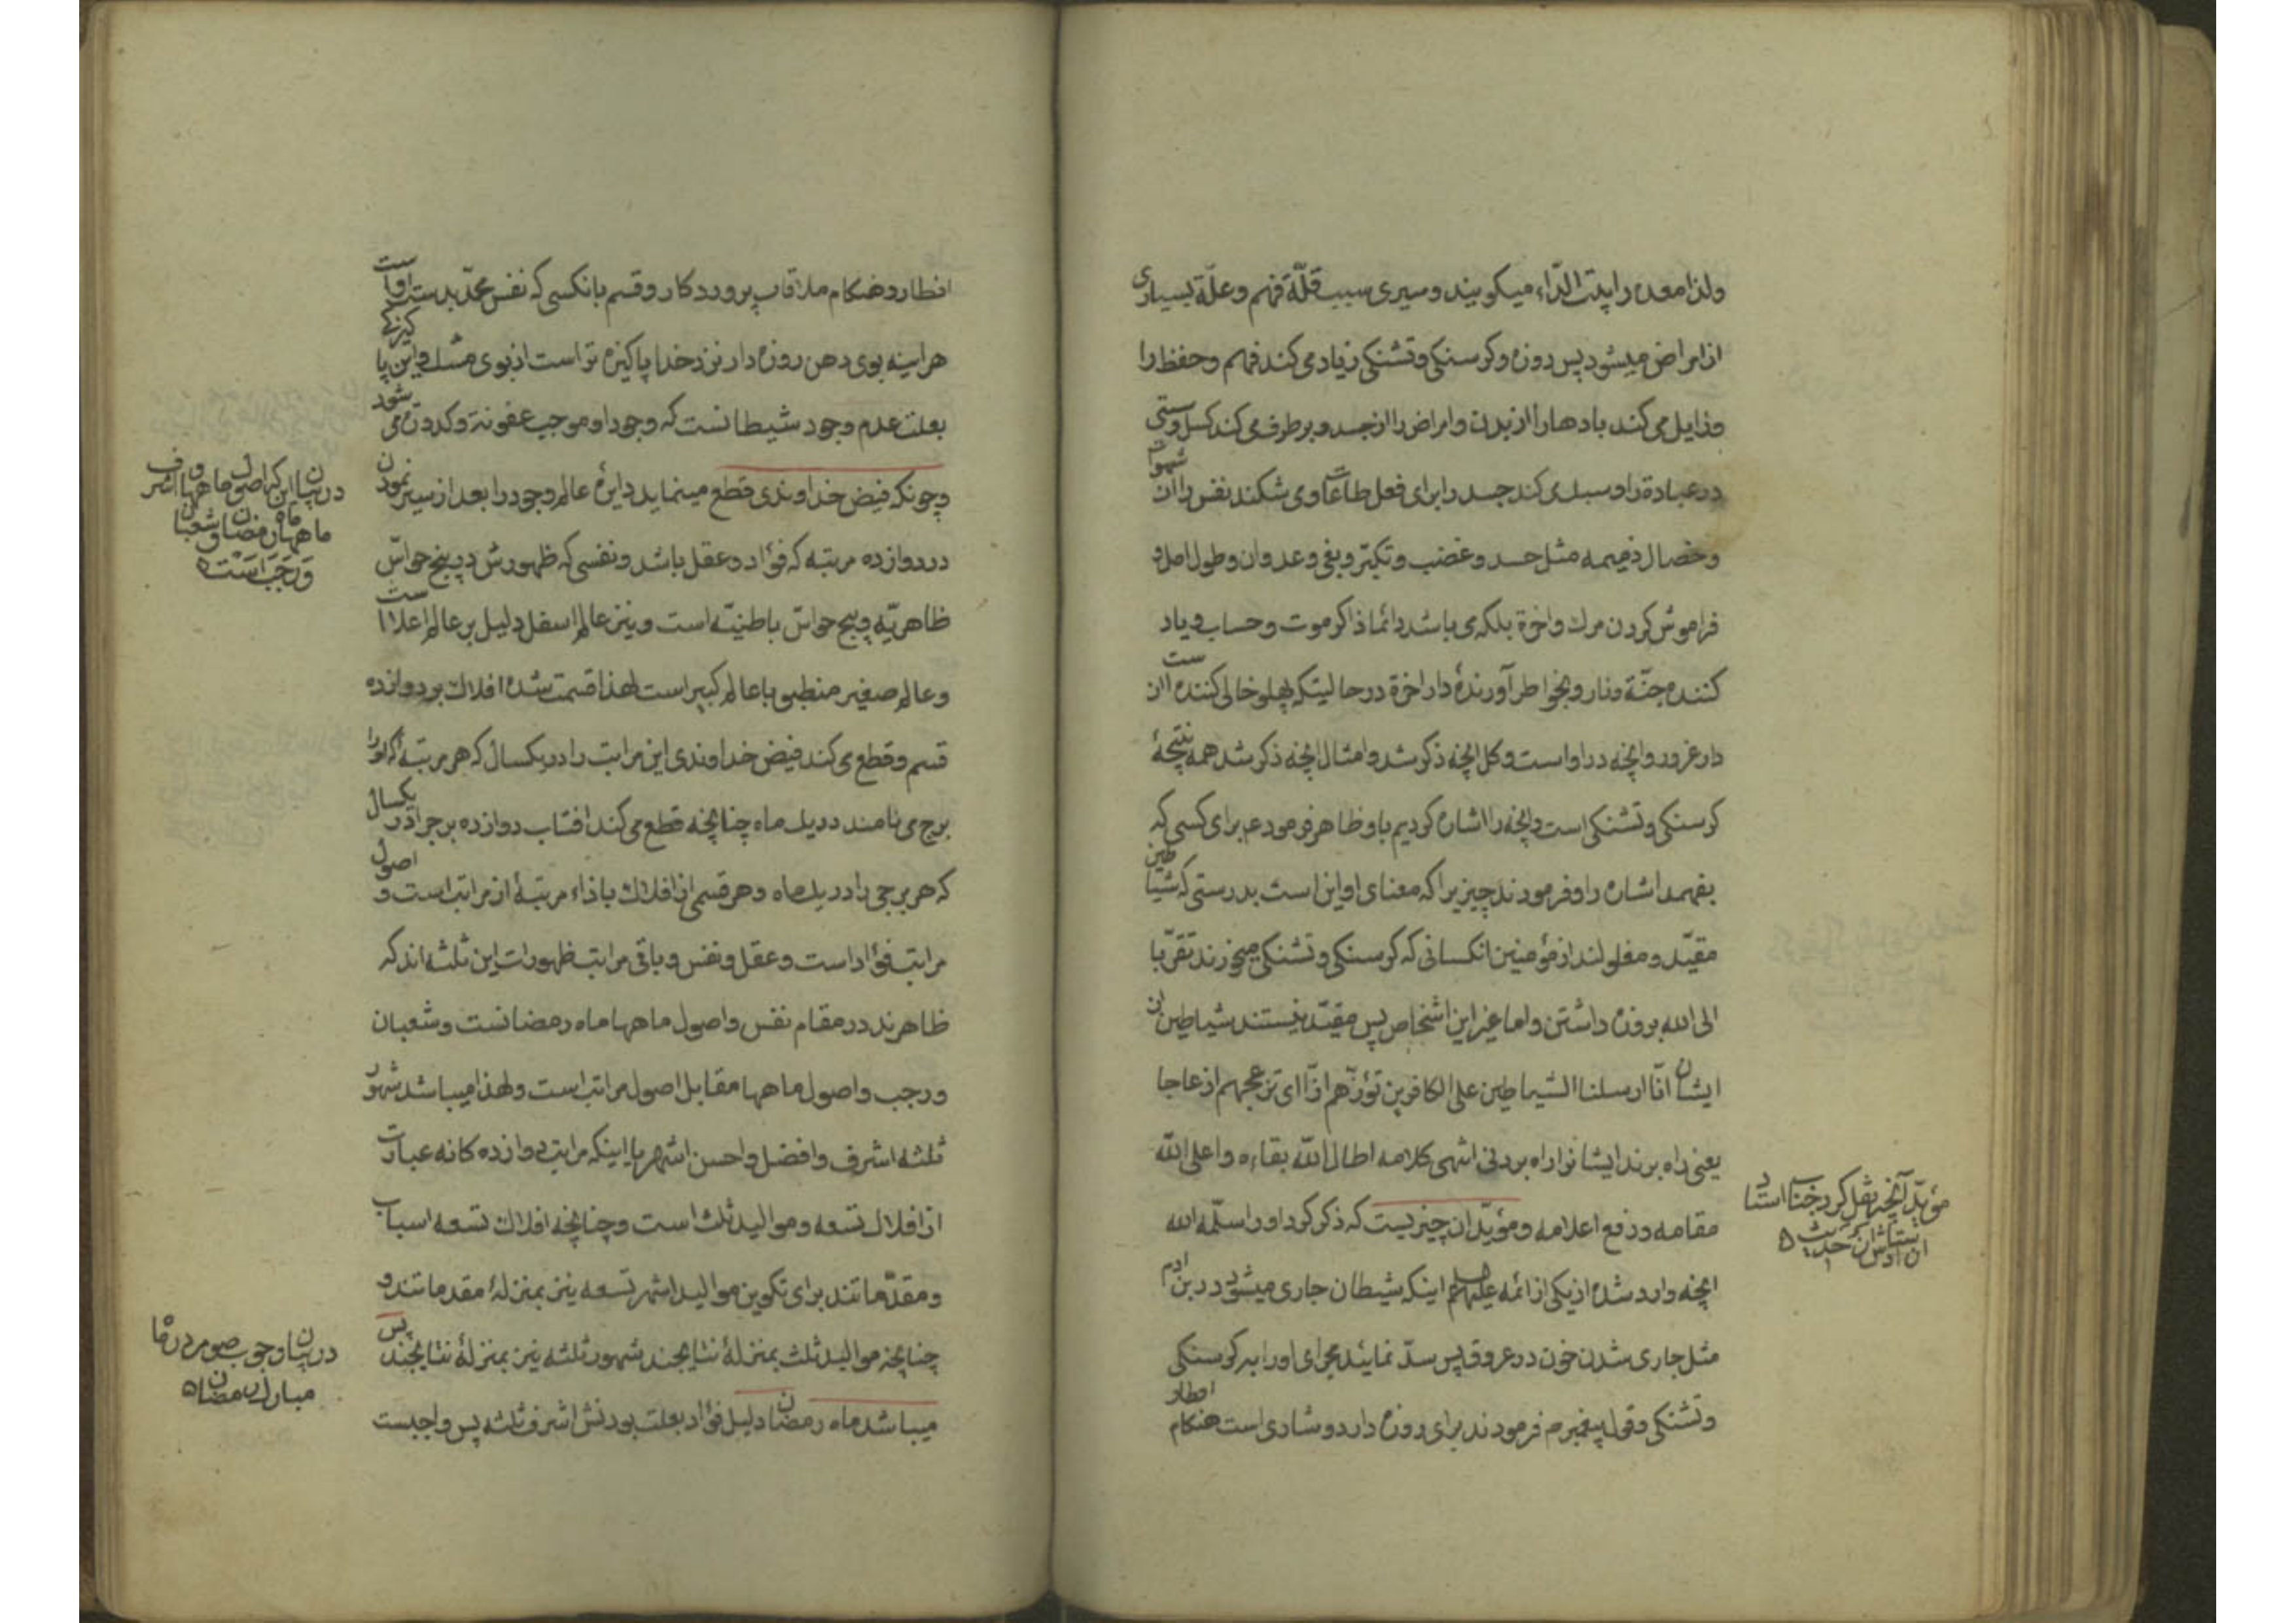 ولذا معده را بیت الدّاء میکویند وسیری سبب قلّة فهم وعلّة بسیاری
از امراض میشود پس روزه وکرسنکی وتشنکی زیاد می کند فهم وحفظ را
وزایل می کند بادها را از بدن وامراض را از جسد وبرطرف می کند کسل وسستی
در عبادة را وسبک می کند جسد را برای فعل طاعات ومی شکند نفس را از شهوات
وخصال ذمیمه مثل حسد وغضب وتکبّر وبغی وعدوان وطول امل و
فراموش کردن مرك واخرة بلکه می باشد دائما ذاکر موت وحساب ویاد
کننده جنّة ونار وبخواطر آورندهٔ دار اخرة در حالیتکه پهلو خالی کننده است از
دار غرور وانچه در او است وکل انچه ذکر شد وامثال انچه ذکر شد همه نتیجهٔ
کرسنکی وتشنکی است وانچه را اشاره کردیم باو ظاهر فرمود عم برای کسی که
بفهمد اشاره را وفرمودند چیزیرا که معنای او این است بدرستی که شیاطین
مقیّد ومغلولند از مؤمنین انکسانی که کرسنکی وتشنکی میخورند تقرّبا
الی الله بروزه داشتن واما غیر این اشخاص پس مقیّد نیستند شیاطین از
ایشان انّا ارسلنا الشیاطین علی الکافرین تؤزّهم ازّا ای تزعجهم ازعاجا
یعنی راه برند ایشانرا راه بردنی انتهی کلامه اطال الله بقاءه واعلی الله
مقامه ورفع اعلامه ومؤیّد ان چیزیست که ذکر کرد او را سلّمه الله
انچه وارد شده از یکی از ائمه علیهم السلم اینکه شیطان جاری میشود در بن ادم
مثل جاری شدن خون در عروق پس سدّ نمائید مجرای او را به کرسنکی
وتشنکی وقول پیغمبر ص فرمودند برای روزه دار دو شادی است هنکام افطار
مؤید آنچه نقل کرد جناب استاد
ان استاد شان حدیث
افطار وهنکام ملاقات پروردکار وقسم بانکسی که نفس محمّد بدست او است
هراینه بوی دهن روزه دار نزد خدا پاکیزه تر است از بوی مشك واین پاکیزکی
بعلت عدم وجود شیطانست که وجود او موجب عفونة وکدورة می شود
وچونکه فیض خداوندی قطع مینماید دایرهٔ عالم وجود را بعد از سیر نمودن
در دوازده مرتبه که فؤاد وعقل باشد ونفسی که ظهورش در پنج حواسّ
ظاهریّه وپنج حواسّ باطنیّه است ونیز عالم اسفل دلیل بر عالم اعلا است
وعالم صغیر منطبق با عالم کبیر است لهذا قسمت شده افلاك بر دوازده
قسم وقطع می کند فیض خداوندی این مراتب را در یکسال که هر مرتبه که او را
برج می نامند در یك ماه چنانچه قطع می کند افتاب دوازده برج را در یکسال
که هر برجی را در یك ماه وهر قسمی از افلاك باذاء مرتبهٔ از مراتب است و اصول
مراتب فؤاد است وعقل ونفس وباقی مراتب ظهورات این ثلثه اند که
ظاهرند در مقام نفس واصول ماهها ماه رمضانست وشعبان
ورجب واصول ماهها مقابل اصول مراتب است ولهذا میباشد شهور
ثلثه اشرف وافضل واحسن اشهر یا اینکه مراتب دوازده کانه عبارت
از افلاك تسعه وموالید ثلث است وچنانچه افلاك تسعه اسباب
ومقدّماتند برای تکوین موالید اشهر تسعه نیز بمنزلهٔ مقدماتند و
چنانچه موالید ثلث بمنزلهٔ نتایجند شهور ثلثه نیز بمنزلهٔ نتایجند پس
میباشد ماه رمضان دلیل فؤاد بعلت بودنش اشرف ثلثه پس واجبست
در بیان این که اصول ماهها واشرف
ماهها ماه رمضان وشعبان
ورجب است
در بیان وجوب صوم در ماه
مبارك رمضان